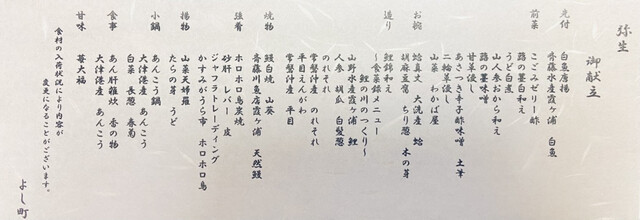 弥生
御献立
先付
白魚唐揚
斉藤水産霞ヶ浦 白魚
前菜
こごみゼリー酢
蕗の薹白和え
うど白煮
山人参おから和え
蕗の薹味噌
甘草浸し
あさつき辛子酢味噌 土筆
二輪草浸し
山菜 わかば屋
お椀
蛤真丈 大洗産 蛤
胡麻豆腐 ちり葱 木の芽
造り
鯉錦和え
〜食菜録メニュー
鯉の川のつくり〜
山野水産霞ヶ浦 鯉
人参 胡瓜 白髪葱
のれそれ
常磐沖産 のれそれ
平目えんがわ
常磐沖産 平目
焼物
鰻白焼 山葵
斉藤川魚店霞ヶ浦 天然鰻
強肴
ホロホロ鳥炭焼
砂肝 レバー 皮
ジャフラトレーディング
かすみがうら市 ホロホロ鳥
揚物
山菜天婦羅
たらの芽 うど
小鍋
あんこう鍋
大津港産 あんこう
白菜 長葱 春菊
食事
あん肝雑炊 香の物
大津港産 あんこう
甘味
苺大福
食材の入荷状況により内容が
変更になることがございます。
よし町